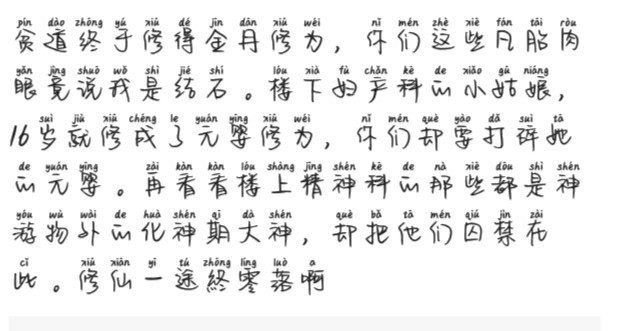 pín dào zhōng yú xiū dé jīn dān xiū wéi nǐ mén zhè xiē fán tāi ròu
贫道终于修得金丹修为，你们这些凡胎肉
yǎn jìng shuō wǒ shì jié shí lóu xià fù chǎn kē de xiǎo gū niáng
眼竟说我是结石。楼下妇产科的小姑娘，
suì jiù xiū chéng le yuán yīng xiū wéi nǐ mén què yào dǎ suì tā
16岁就修成了元婴修为，你们却要打碎她
de yuán yīng zài kàn kàn lóu shàng jīng shén kē de nà xiē dōu shì shén
的元婴。再看看楼上精神科的那些都是神
yóu wù wài de huà shén qī dà shén què bǎ tā mén qiú jìn zài
游物外的化神期大神，却把他们囚禁在
cǐ xiū xiān yī tú zhōng líng luò a
此。修仙一途終零落啊